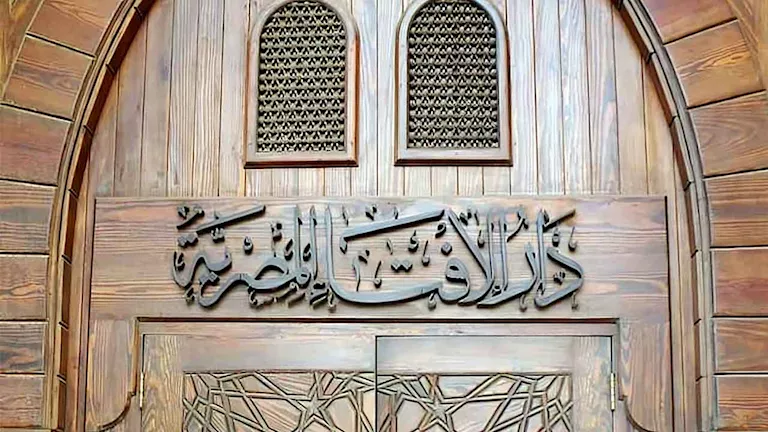 دَارُ الإِفتَاءِ المِصْرِيَّةُ